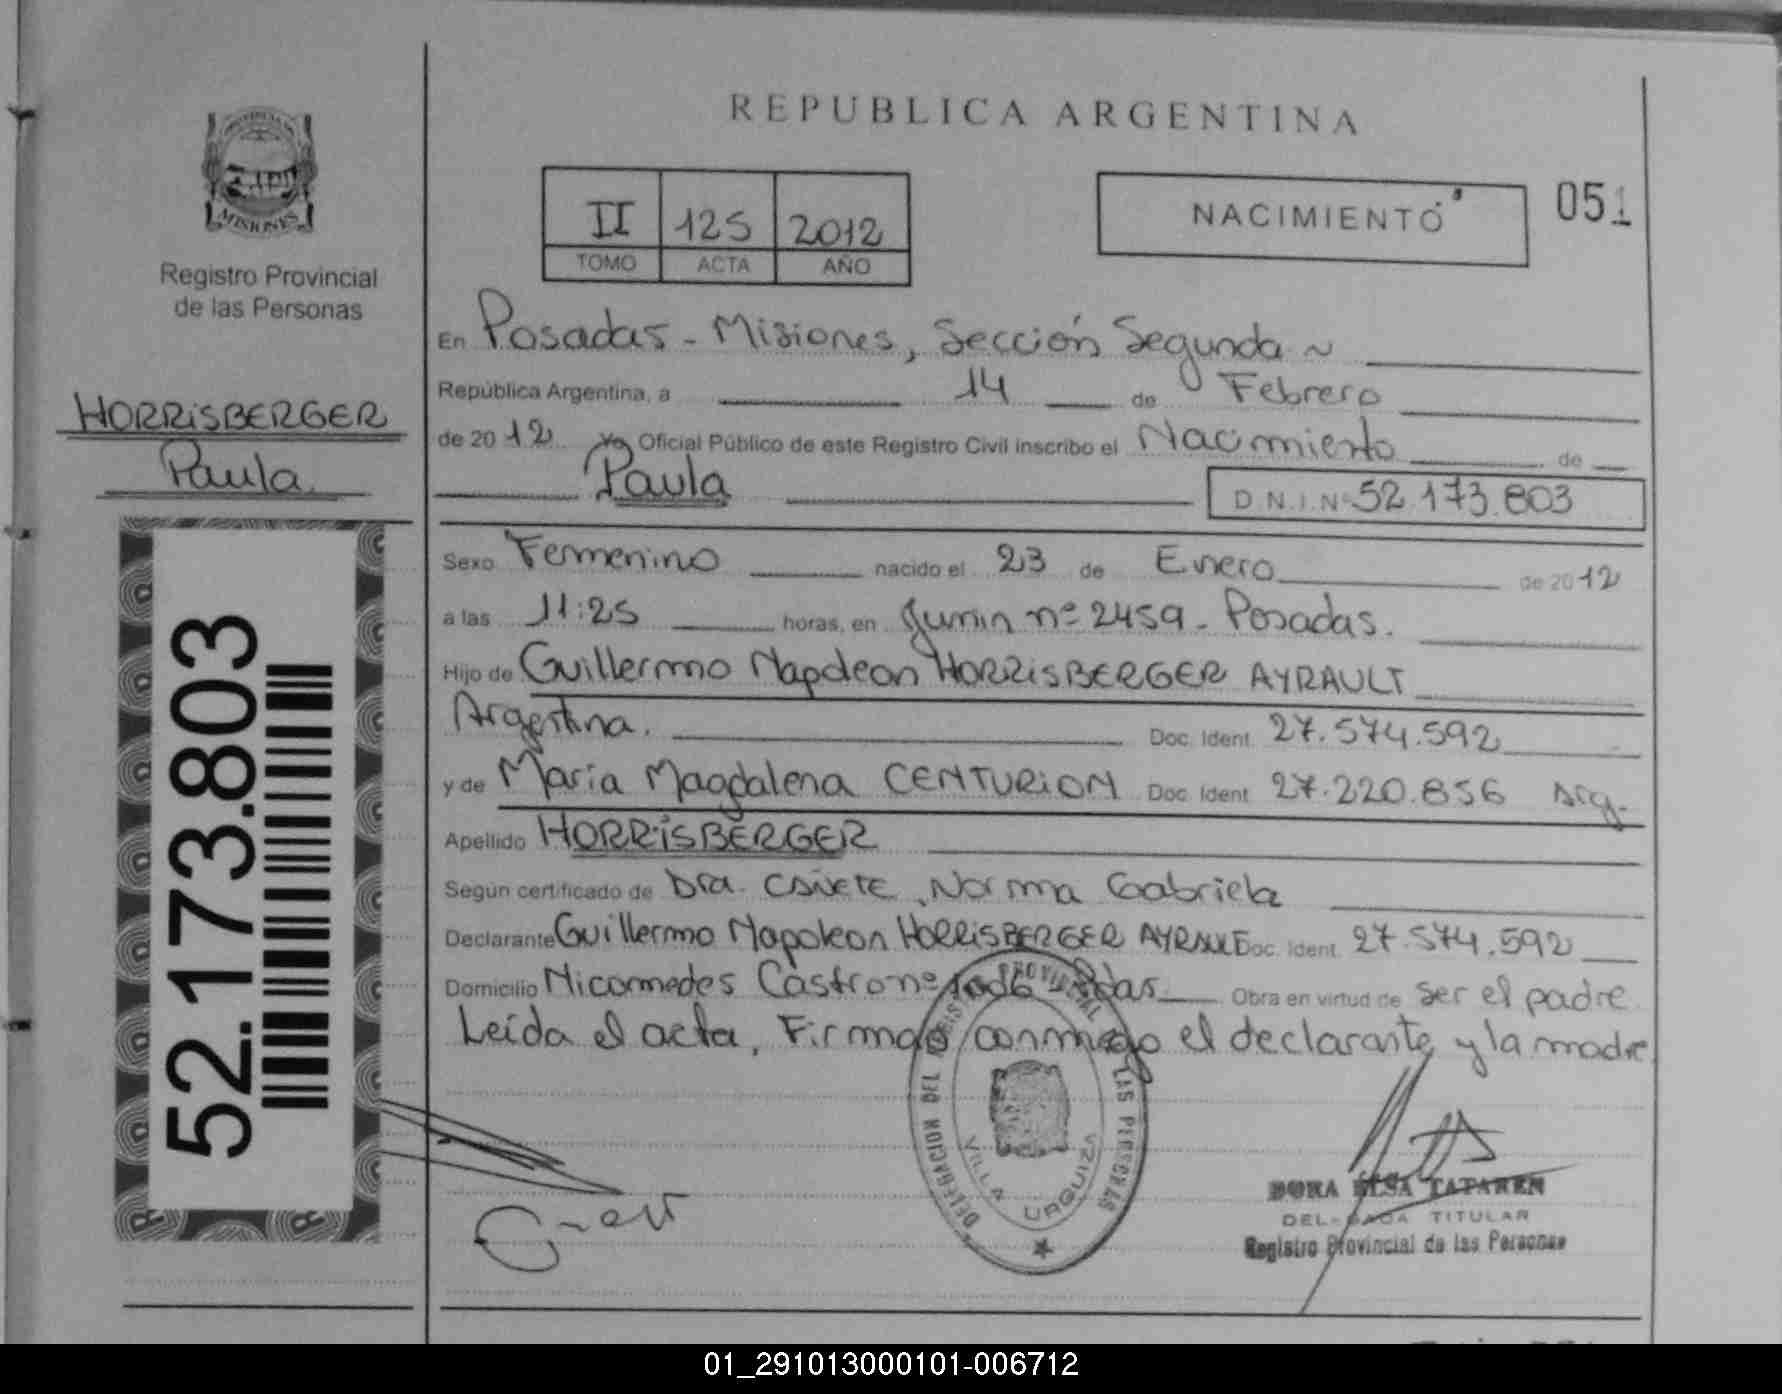 REPUBLICA ARGENTINA
PROVINCIA DE
MISIONES
Registro Provincial
de las Personas
II 125 2012
TOMO ACTA AÑO
NACIMIENTO
051
HORRISBERGER
Paula
52.173.803
En Posadas - Misiones, Sección Segunda ~
República Argentina, a 14 de Febrero
de 2012 Yo Oficial Público de este Registro Civil inscribo el Nacimiento de
Paula D.N.I.Nº 52.173.803
Sexo Femenino nacido el 23 de Enero de 2012
a las 11:25 horas, en Junin nº 2459 - Posadas.
Hijo de Guillermo Napoleon HORRISBERGER AYRAULT
Argentina. Doc. Ident. 27.574.592
y de Maria Magdalena CENTURION Doc. Ident. 27.220.856 Arg.
Apellido HORRISBERGER
Según certificado de Dra. CAÑETE, Norma Gabriela
Declarante Guillermo Napoleon HORRISBERGER AYRAULT Doc. Ident. 27.574.592
Domicilio Nicomedes Castro nº Pdas. Obra en virtud de ser el padre
Leída el acta, Firman conmigo el declarante y la madre
DELEGACION DEL REGISTRO PROVINCIAL DE LAS PERSONAS
VILLA URQUIZA
DORA ELSA TATAREN
DELEGADA TITULAR
Registro Provincial de las Personas
01_291013000101-006712